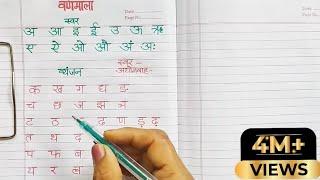 वर्णमाला
स्वर
अ आ इ ई उ ऊ ऋ
ए ऐ ओ औ अं अः
व्यंजन
स्वर -
अयोगवाह -
क ख ग घ ङ
च छ ज झ ञ
ट ठ ढ ण ड़ ढ़
त थ द
प फ ब
य र ल
4M+
VIEWS